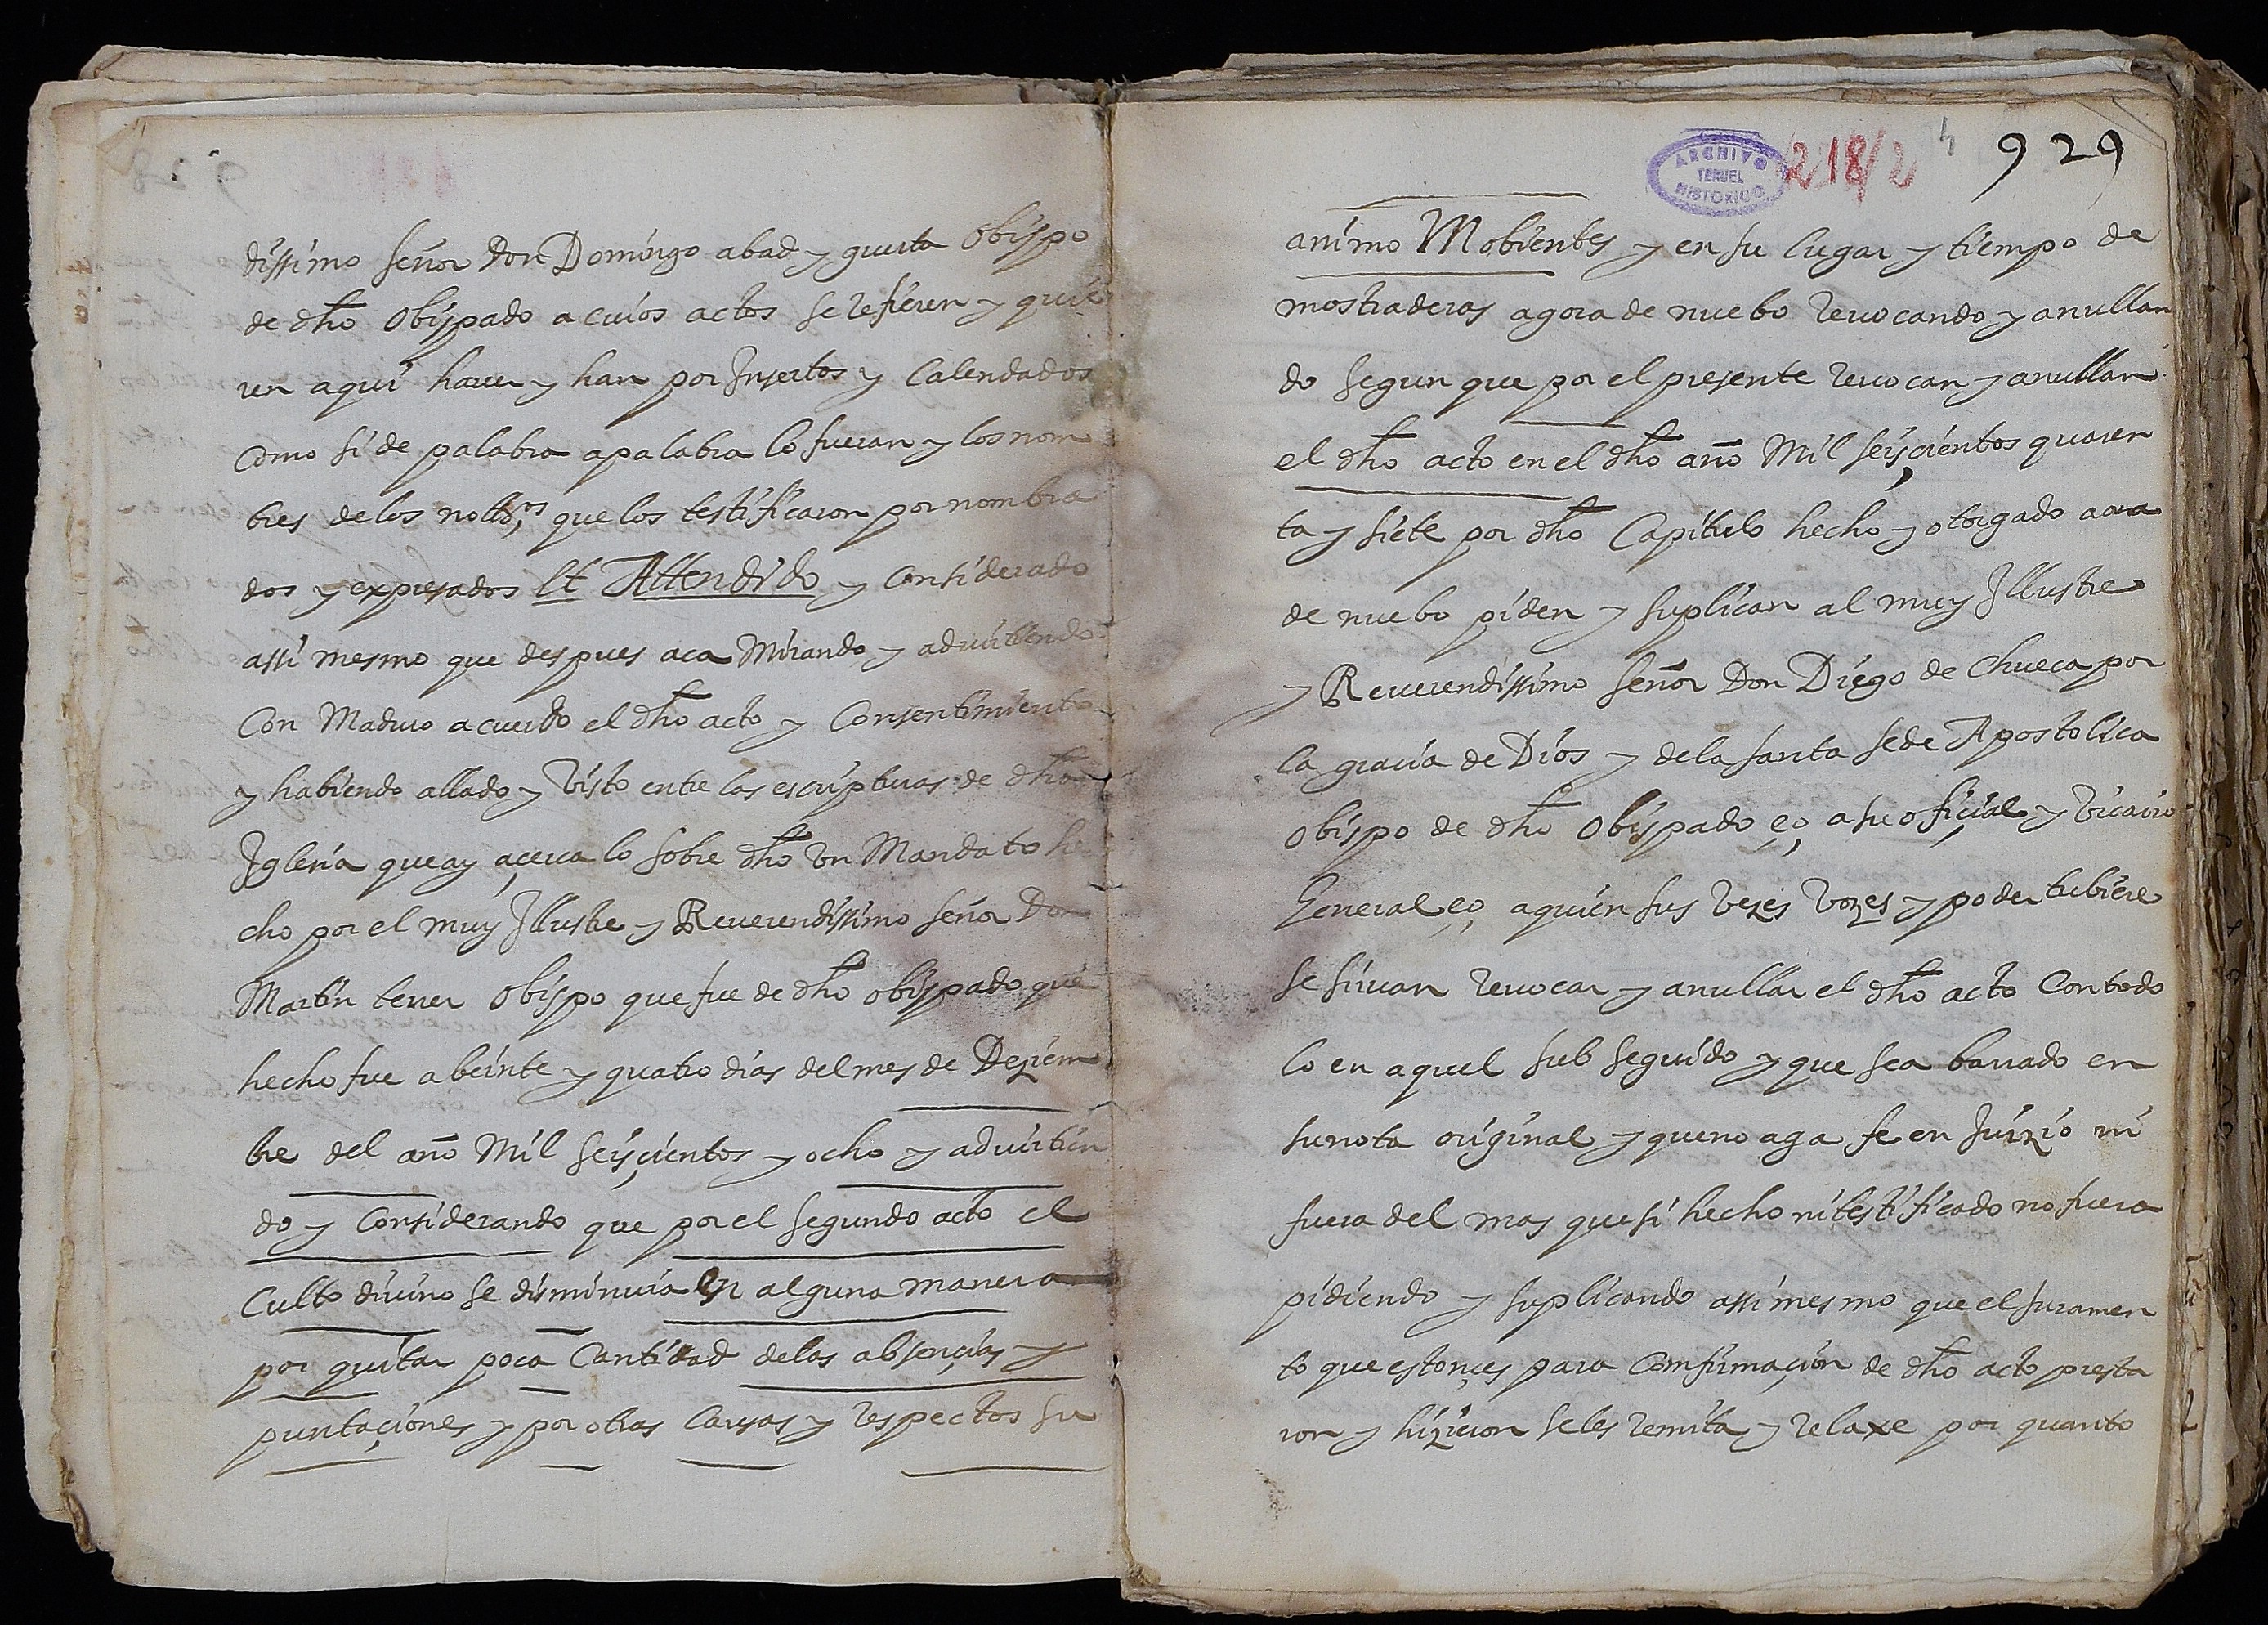 dissimo señor Don Domingo abad y guerta Obispo
de dho Obispado a cuios actos se refieren y quie
ren aqui hauer y han por Insertos y Calendados
Como si de palabra a palabra lo fueran y los nom
bres de los nottos, que los testificaron por nombra
dos y expresados Et Attendido y considerado
assi mesmo que despues aca Mirando y aduirtiendo
Con Maduro acuerdo el dho acto y Consentimiento
y habiendo allado y Visto entre las escripturas de dha
Iglesia que ay açerca lo sobre dho Vn Mandato he
cho por el muy Illustre y Reuerendissimo señor Don
Martin terer Obispo que fue de dho obispado que
hecho fue a beinte y quatro dias del mes de Deziem
bre del año Mil seisçientos y ocho y aduirtien
do y Considerando que por el segundo acto el
Culto diuino se disminuia En alguna manera
por quitar poca Cantidad de las absençias y
puntaçiones y por otras Causas y respectos su
ARCHIVO
TERUEL
HISTORICO
218/2
4
929
animo Mobientes y en su lugar y tiempo de
mostraderas agora de nuebo reuocando y anullan
do segun que por el presente reuocan y anullan
el dho acto en el dho año Mil seisçientos quaren
ta y siete por dho Capitulo hecho y otorgado aora
de nuebo piden y suplican al muy Illustre
y Reuerendissimo señor Don Diego de Chueca por
la gracia de Dios y de la santa sede Apostolica
obispo de dho Obispado eo, a su ofiçial y Vicario
General eo, a quien sus Vezes Vozes y poder tubiere
se siruan reuocar y anullar el dho acto Con todo
lo en aquel sub seguido y que sea barrado en
su nota original y que no aga fe en Juizio ni
fuera del mas que si hecho ni testificado no fuera
pidiendo y suplicando assi mesmo que el Juramen
to que estonçes para Comfirmaçion de dho acto presta
ron y hizieron se les remita y relaxe por quanto